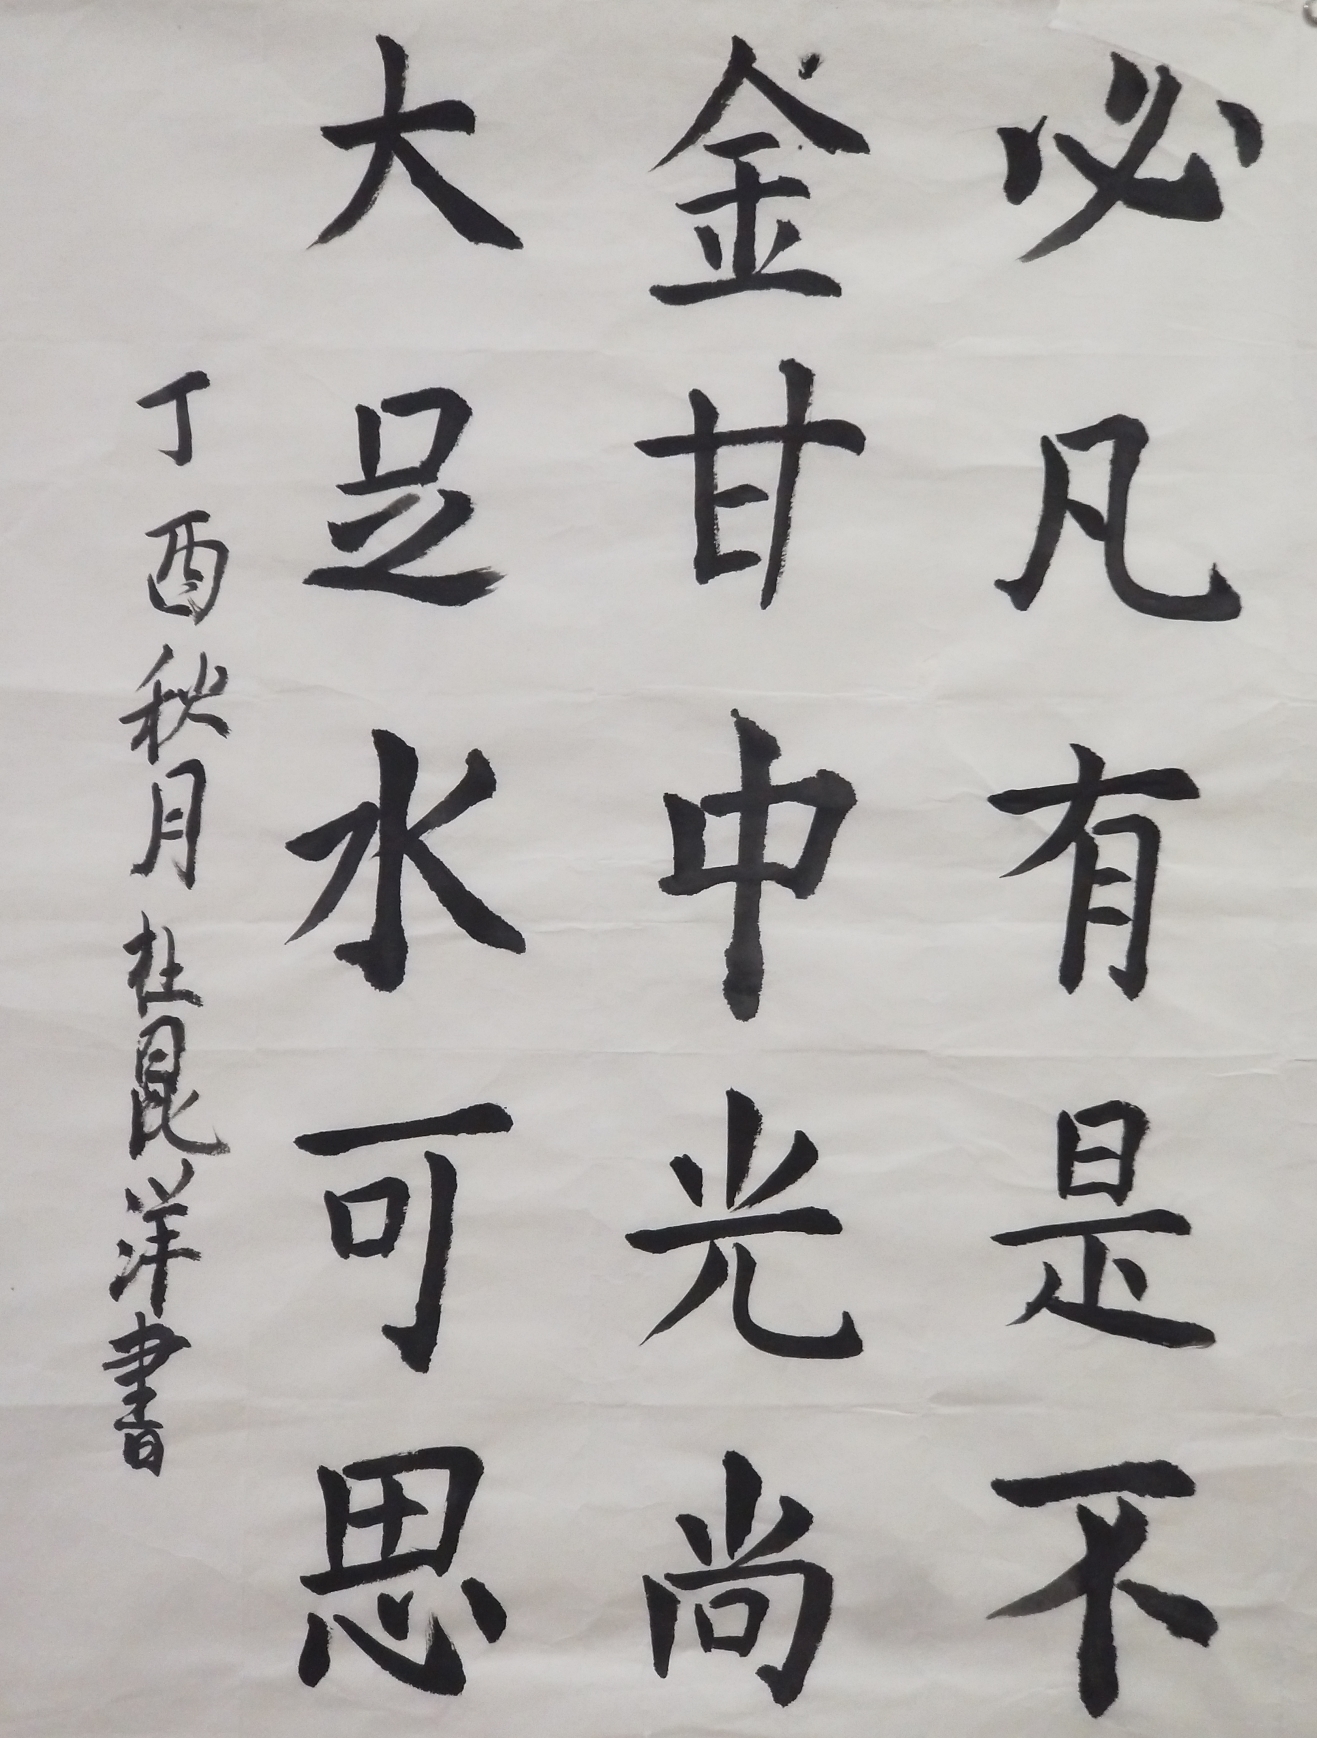 必凡有是不
金甘中光尚
大足水可思
丁酉秋月杜昆洋書